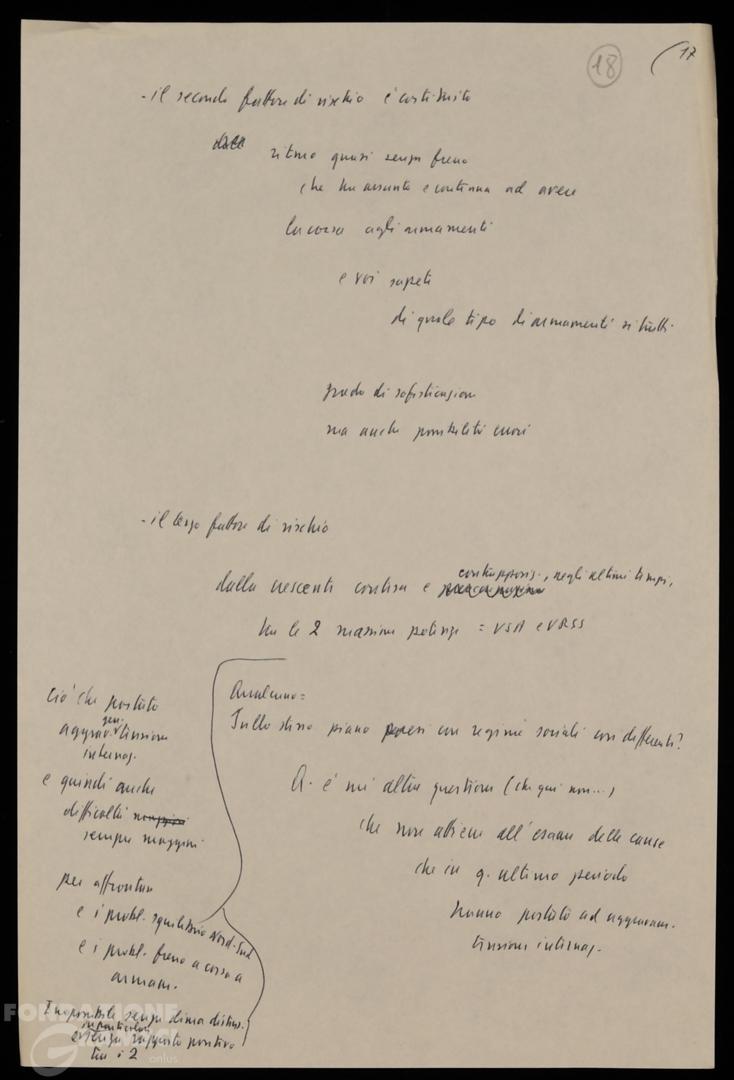 18
17
- il secondo fattore di rischio è costituito
dal
ritmo quasi senza freno
che ha assunto e continua ad avere
la corsa agli armamenti
e voi sapete
di quale tipo di armamenti si tratti
grado di sofisticazione
ma anche possibilità errori
- il terzo fattore di rischio
dalla crescente contesa e contrappos., negli ultimi tempi,
tra le 2 massime potenze = USA e URSS
Qualcuno =
Sullo stesso piano paesi con regimi sociali così differenti?
Q. è un'altra questione (che qui non...)
che non attiene all'esame delle cause
che in q. ultimo periodo
hanno portato ad aggravam.
tensione internaz.
ciò che portato
aggrav. gen. tensione
internaz.
e quindi anche
difficoltà
sempre maggiori
per affrontare
e i probl. squilibrio Nord-Sud
e i probl. freno a corsa a
armam.
Impossibile senza clima distens.
in particolare
senza rapporto positivo
tra i 2
FONDAZIONE
GRAMSCI
onlus